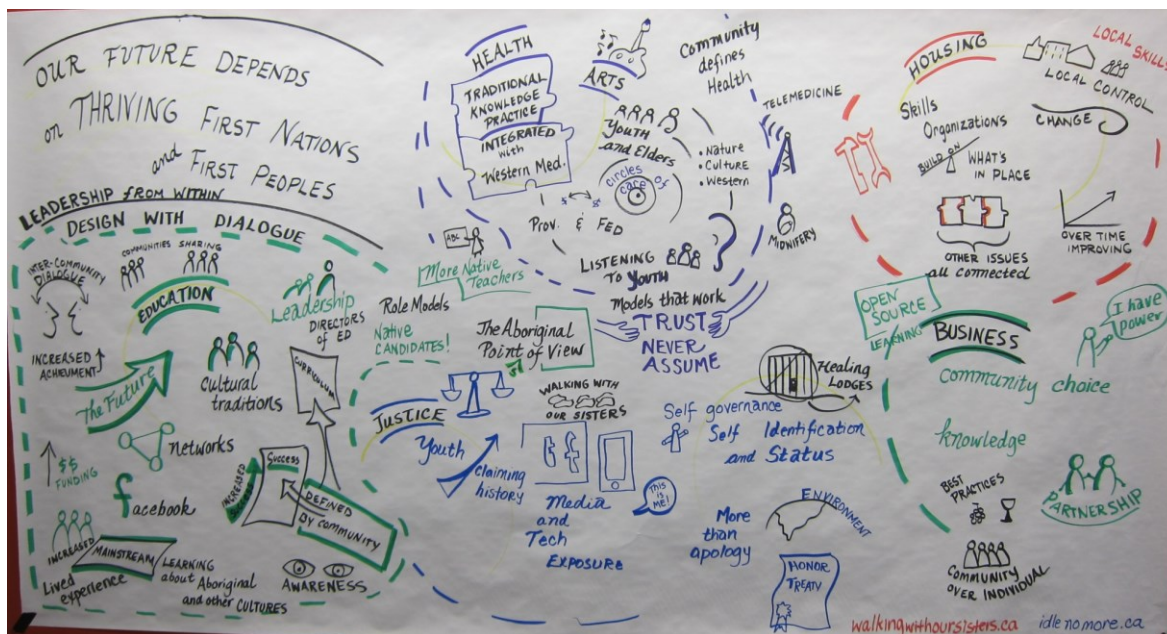 OUR FUTURE DEPENDS
on THRIVING FIRST NATIONS
and FIRST PEOPLES
LEADERSHIP from WITHIN
DESIGN WITH DIALOGUE
INTER-COMMUNITY
DIALOGUE
COMMUNITIES SHARING
EDUCATION
INCREASED
The Future
Leadership
DIRECTORS
OF ED
CURRICULUM
Cultural
traditions
networks
$$
FUNDING
facebook
INCREASED
Success
DEFINED
BY COMMUNITY
INCREASED
MAINSTREAM
Lived
experience
LEARNING
about Aboriginal
and other CULTURES
AWARENESS
HEALTH
TRADITIONAL
KNOWLEDGE
PRACTICE
INTEGRATED
with
Western Med.
ARTS
Youth
and Elders
circles of
care
Prov. & FED
$ $
Community
defines
Health
• Nature
• Culture
• Western
TELEMEDICINE
MIDWIFERY
LISTENING
TO YOUTH
Models that work
ABC
More Native
Teachers
Role Models
Native
CANDIDATES!
The Aboriginal
Point of View
TRUST
NEVER
ASSUME
JUSTICE
Youth
claiming
history
WALKING WITH
OUR SISTERS
Media
and
Tech
EXPOSURE
THIS
IS
ME!
Healing
LODGES
Self governance
Self Identification
and Status
More
than
apology
ENVIRONMENT
HONOR
TREATY
HOUSING
LOCAL SKILLS
LOCAL CONTROL
Skills
Organizations
BUILD ON
WHAT'S
IN PLACE
CHANGE
OTHER ISSUES
all connected
OVER TIME
IMPROVING
OPEN
SOURCE
LEARNING
BUSINESS
I have
power
community choice
knowledge
BEST
PRACTICES
PARTNERSHIP
COMMUNITY
OVER INDIVIDUAL
walkingwithoursisters.ca idlenomore.ca